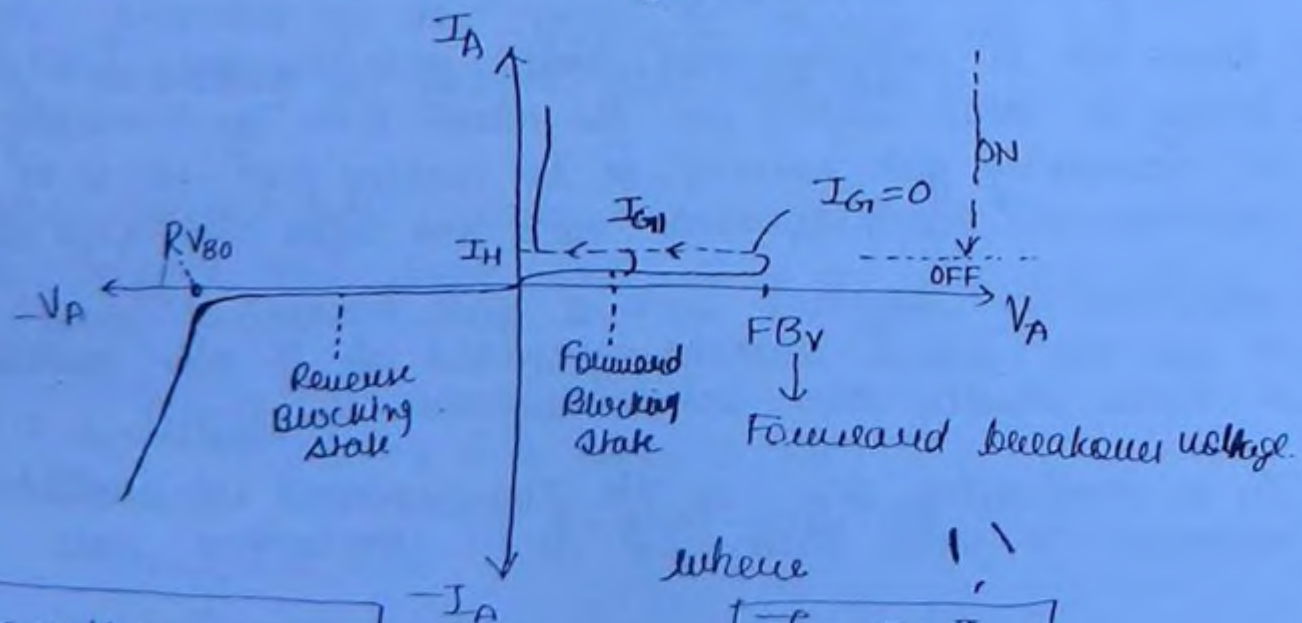 I_A
ON
I_G = 0
I_G11
RV_BO
I_H
OFF
-V_A
V_A
FB_V
Reverse
Blocking
State
Forward
Blocking
State
↓
Forward breakover voltage.
where
-I_A